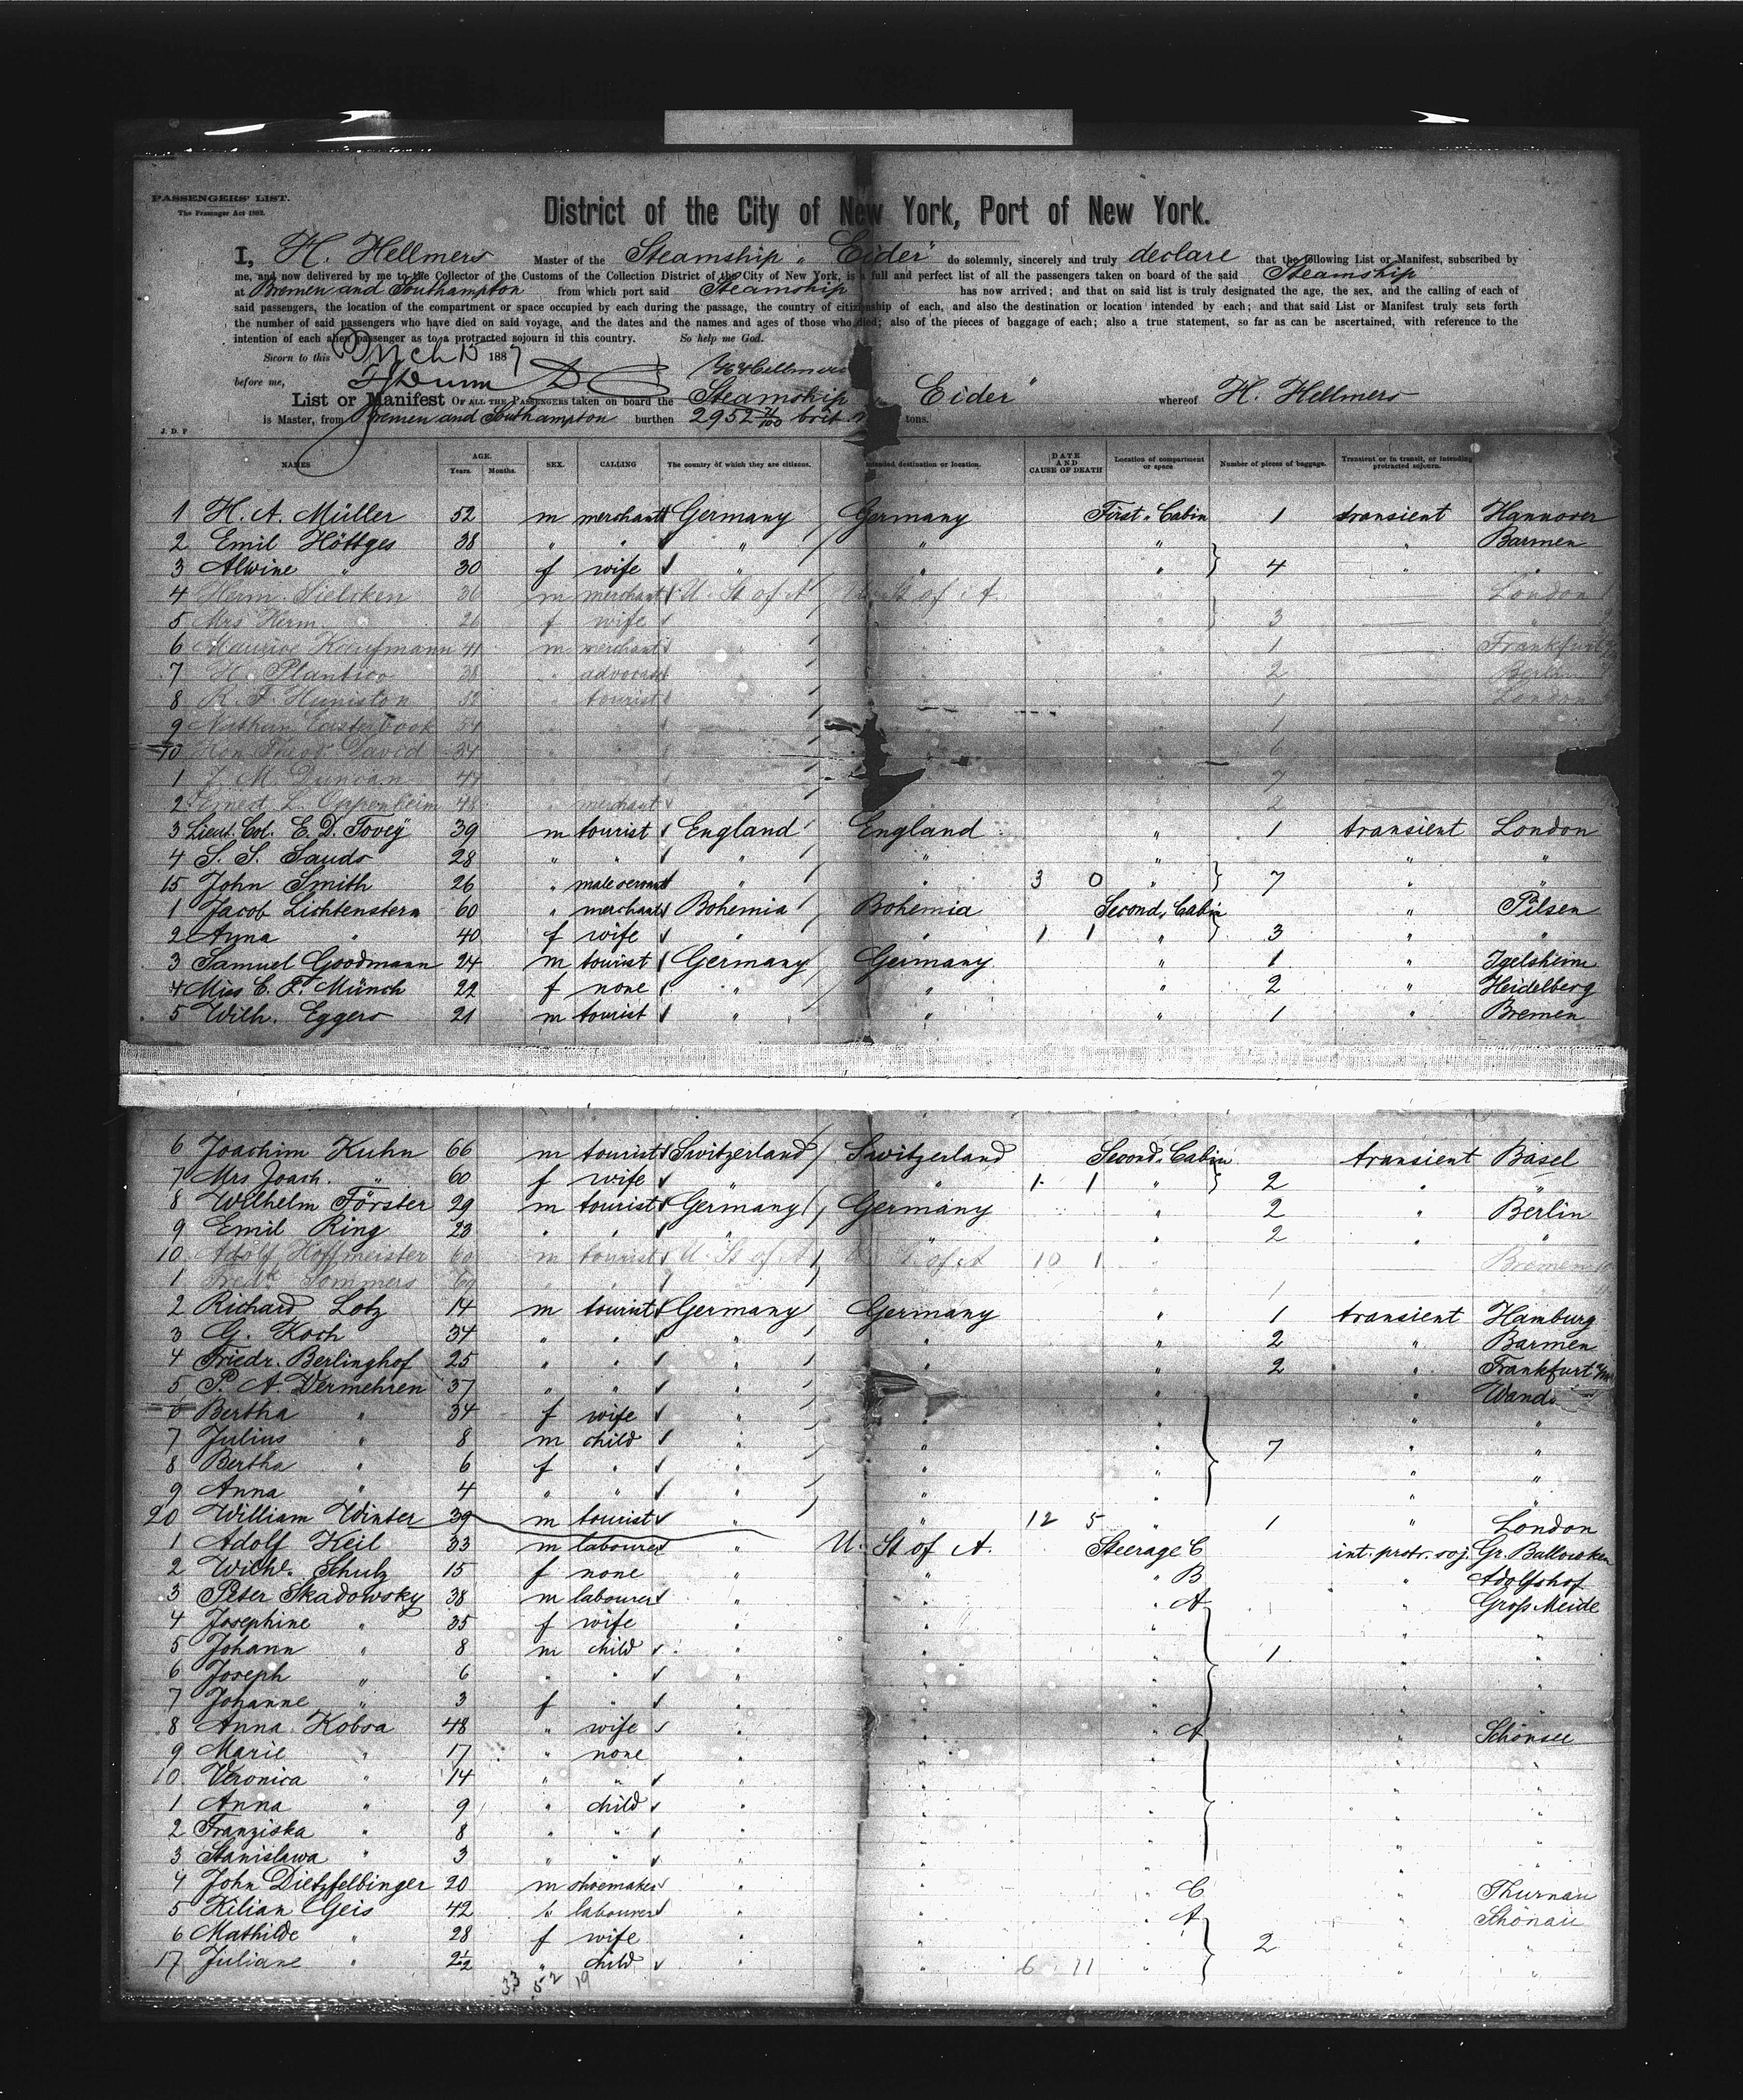 PASSENGERS' LIST.
The Passenger Act 1882.
District of the City of New York, Port of New York.
I, H. Hellmers Master of the Steamship „Eider" do solemnly, sincerely and truly declare that the following List or Manifest, subscribed by
me, and now delivered by me to the Collector of the Customs of the Collection District of the City of New York, is a full and perfect list of all the passengers taken on board of the said Steamship
at Bremen and Southampton from which port said Steamship has now arrived; and that on said list is truly designated the age, the sex, and the calling of each of
said passengers, the location of the compartment or space occupied by each during the passage, the country of citizenship of each, and also the destination or location intended by each; and that said List or Manifest truly sets forth
the number of said passengers who have died on said voyage, and the dates and the names and ages of those who died; also of the pieces of baggage of each; also a true statement, so far as can be ascertained, with reference to the
intention of each alien passenger as to a protracted sojourn in this country. So help me God.
Sworn to this March 15 1887
before me, H Hellmers
List or Manifest OF ALL THE PASSENGERS taken on board the Steamship „Eider" whereof H. Hellmers
is Master, from Bremen and Southampton burthen 2952 brit tons.
J. D. P
NAMES AGE. Years. Months. SEX. CALLING The country of which they are citizens. Intended destination or location. DATE AND CAUSE OF DEATH Location of compartment or space. Number of pieces of baggage. Transient or in transit, or intending protracted sojourn.
1 H. A. Müller 52 m merchant Germany Germany First Cabin 1 transient Hannover
2 Emil Höttges 38 " " " " " " Barmen
3 Alwine " 30 f wife " " " 4 " "
4 Herm. Sielcken 36 m merchant U. St of A U. St of A. London
5 Mrs Herm. " 26 f wife " " " 3 "
6 Maurice Kaufmann 41 m merchant " " " 1 Frankfurt
7 H. Plantico 38 " advocate " " " 2 Berlin
8 R. F. Huniston 32 " tourist " " " 1 London
9 Nathan Easterbook 54 " " " " 1
10 Hon Theod. David 34 " " " " 6
1 J. M. Duncan 44 " " " " 7
2 Ernest L. Oppenheim 48 " merchant " " " 2
3 Lieut. Col. E. D. Tovey 39 m tourist England England " 1 transient London
4 S. S. Sauds 28 " " " " " " "
15 John Smith 26 " male servant " " 3 0 " 7 " "
1 Jacob Lichtenstern 60 " merchant Bohemia Bohemia Second Cabin " Pilsen
2 Anna " 40 f wife " " 1 1 " 3 " "
3 Samuel Goodmann 24 m tourist Germany Germany " 1 " Igelsheim
4 Miss C. F. Münch 22 f none " " " 2 " Heidelberg
5 Wilh. Eggers 21 m tourist " " " 1 " Bremen
6 Joachim Kuhn 66 m tourist Switzerland Switzerland Second Cabin transient Basel
7 Mrs Joach. " 60 f wife " " 1 1 " 2 " "
8 Wilhelm Förster 29 m tourist Germany Germany " 2 " Berlin
9 Emil Ring 23 " " " " " 2 " "
10 Adolf Hoffmeister 60 m tourist U. St of A U. St. of A 10 1 " Bremen
1 Fredk Sommers 69 " " " " " 1
2 Richard Lotz 14 m tourist Germany Germany " 1 transient Hamburg
3 G. Koch 34 " " " " " 2 " Barmen
4 Friedr. Berlinghof 25 " " " " " 2 " Frankfurt a/m
5 P. A. Vermehren 37 " " " " " " Wands
6 Bertha " 34 f wife " " " " "
7 Julius " 8 m child " " " 7 " "
8 Bertha " 6 f " " " " " "
9 Anna " 4 " " " " " " "
20 William Winter 39 m tourist " " 12 5 " 1 " London
1 Adolf Keil 33 m labourer " U. St of A. Steerage C int. protr. soj. Gr. Ballowken
2 Wilh. Schulz 15 f none " " " B " Adolfshof
3 Peter Skadowsky 38 m labourer " " " A " Groß Meide
4 Josephine " 35 f wife " " " " "
5 Johann " 8 m child " " " 1 " "
6 Joseph " 6 " " " " " " "
7 Johanne " 3 f " " " " " "
8 Anna Kobsa 48 " wife " " " A " Schönsee
9 Marie " 17 " none " " " "
10 Veronica " 14 " " " " " "
1 Anna " 9 " child " " " "
2 Franziska " 8 " " " " " "
3 Stanislawa " 3 " " " " " "
4 John Dietzfelbinger 20 m shoemaker " " " C " Thurnau
5 Kilian Geis 42 " labourer " " " A " Schönau
6 Mathilde " 28 f wife " " " 2 " "
17 Juliane " 2½ " child " " 6 11 " " "
33 52 19